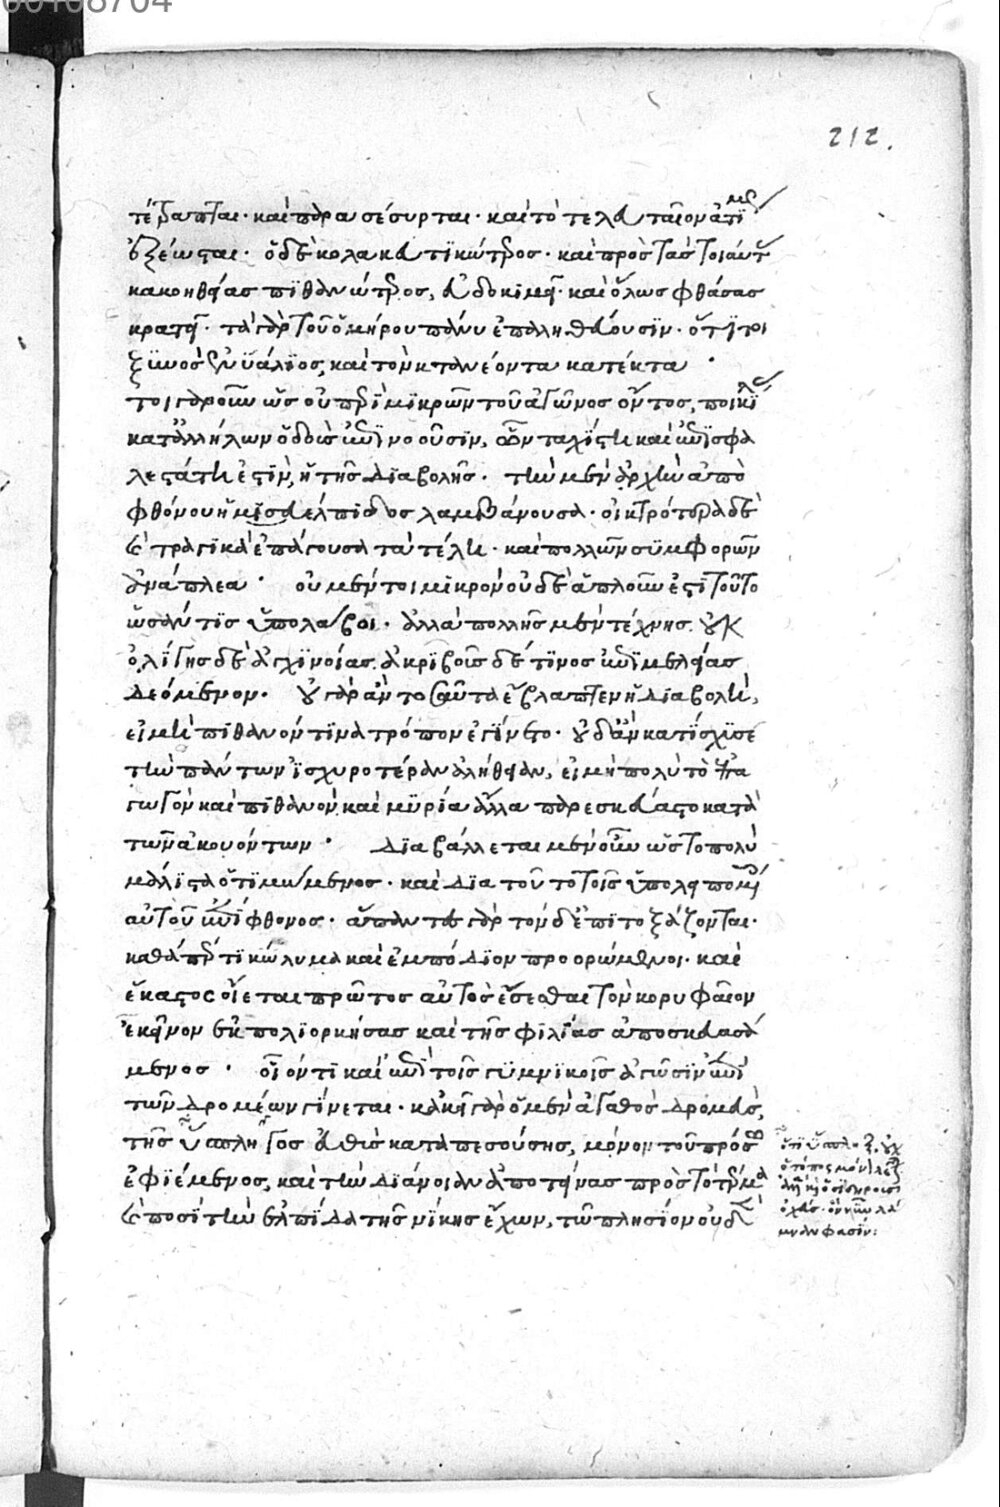 212.
τέτραπται· καὶ παρασέσυρται· καὶ τὸ τελευταῖον ἀτίμως
ἐξέωσται· ὁ δὲ κολακευτικώτερος· καὶ πρὸς τὰς τοιαύτας
κακοηθείας πιθανώτερος, εὐδοκιμεῖ· καὶ ὅλως φθάσας
κρατεῖ· τὸ γὰρ τοῦ ὁμήρου πάνυ ἐπαληθεύουσιν· ὅτι τοι
ξυνὸς ἐνυάλιος, καὶ τὸν κτανέοντα κατέκτα·
τοιγαροῦν ὡς οὐ περὶ μικρῶν τοῦ ἀγῶνος ὄντος, ποικίλας
κατ' ἀλλήλων ὁδοὺς ἐπινοοῦσιν, ὧν ταχίστη καὶ ἐπισφα
λεστάτη ἐστὶν, ἡ τῆς διαβολῆς· τὴν μὲν ἀρχὴν ἀπὸ
φθόνου ἢ μίσους εὐέλπιδος λαμβάνουσα· οἰκτρότερα δὲ
καὶ τραγικὰ ἐπάγουσα τὰ τέλη· καὶ πολλῶν συμφορῶν
ἀνάπλεα· οὐ μέντοι μικρὸν οὐδὲ ἁπλοῦν ἐστὶ τοῦτο
ὡς ἄν τις ὑπολάβοι· ἀλλὰ πολλῆς μὲν τέχνης. οὐκ
ὀλίγης δὲ ἀγχινοίας. ἀκριβοῦς δέ τινος ἐπιμελείας
δεόμενον· οὐ γὰρ ἂν τοσαῦτα ἔβλαπτεν ἡ διαβολὴ,
εἰ μὴ πιθανόν τινα τρόπον ἐγίνετο· οὐδ' ἂν κατίσχυσε
τὴν πάντων ἰσχυροτέραν ἀλήθειαν, εἰ μὴ πολὺ τὸ ἐπα
γωγὸν καὶ πιθανὸν, καὶ μυρία ἄλλα παρεσκεύαστο κατὰ
τῶν ἀκουόντων· διαβάλλεται μὲν οὖν ὡς τοπολὺ
μάλιστα ὁ τιμώμενος· καὶ διὰ τοῦτο τοῖς ὑπολειπομένοις
αὐτοῦ ἐπίφθονος· ἅπαντες γὰρ τόνδ' ἐπιτοξάζονται·
καθάπερ τι κώλυμα καὶ ἐμπόδιον προορώμενοι· καὶ
ἕκαστος οἴεται πρῶτος αὐτὸς ἔσεσθαι τὸν κορυφαῖον
ἐκεῖνον ἐκπολιορκήσας καὶ τῆς φιλίας ἀποσκευασά
μενος· οἷόν τι καὶ ἐπὶ τοῖς γυμνικοῖς ἀγῶσιν ἐπὶ
τῶν δρομέων γίνεται· κἀκεῖ γὰρ ὁ μὲν ἀγαθὸς δρομεὺς,
τῆς ὕσπληγγος εὐθὺς καταπεσούσης, μόνον τοῦ πρόσω
ἐφιέμενος, καὶ τὴν διάνοιαν ἀποτείνας πρὸς τὸ τέρμα
καὶ ποσὶ τὴν ἐλπίδα τῆς νίκης ἔχων, τὸν πλησίον οὐδὲν